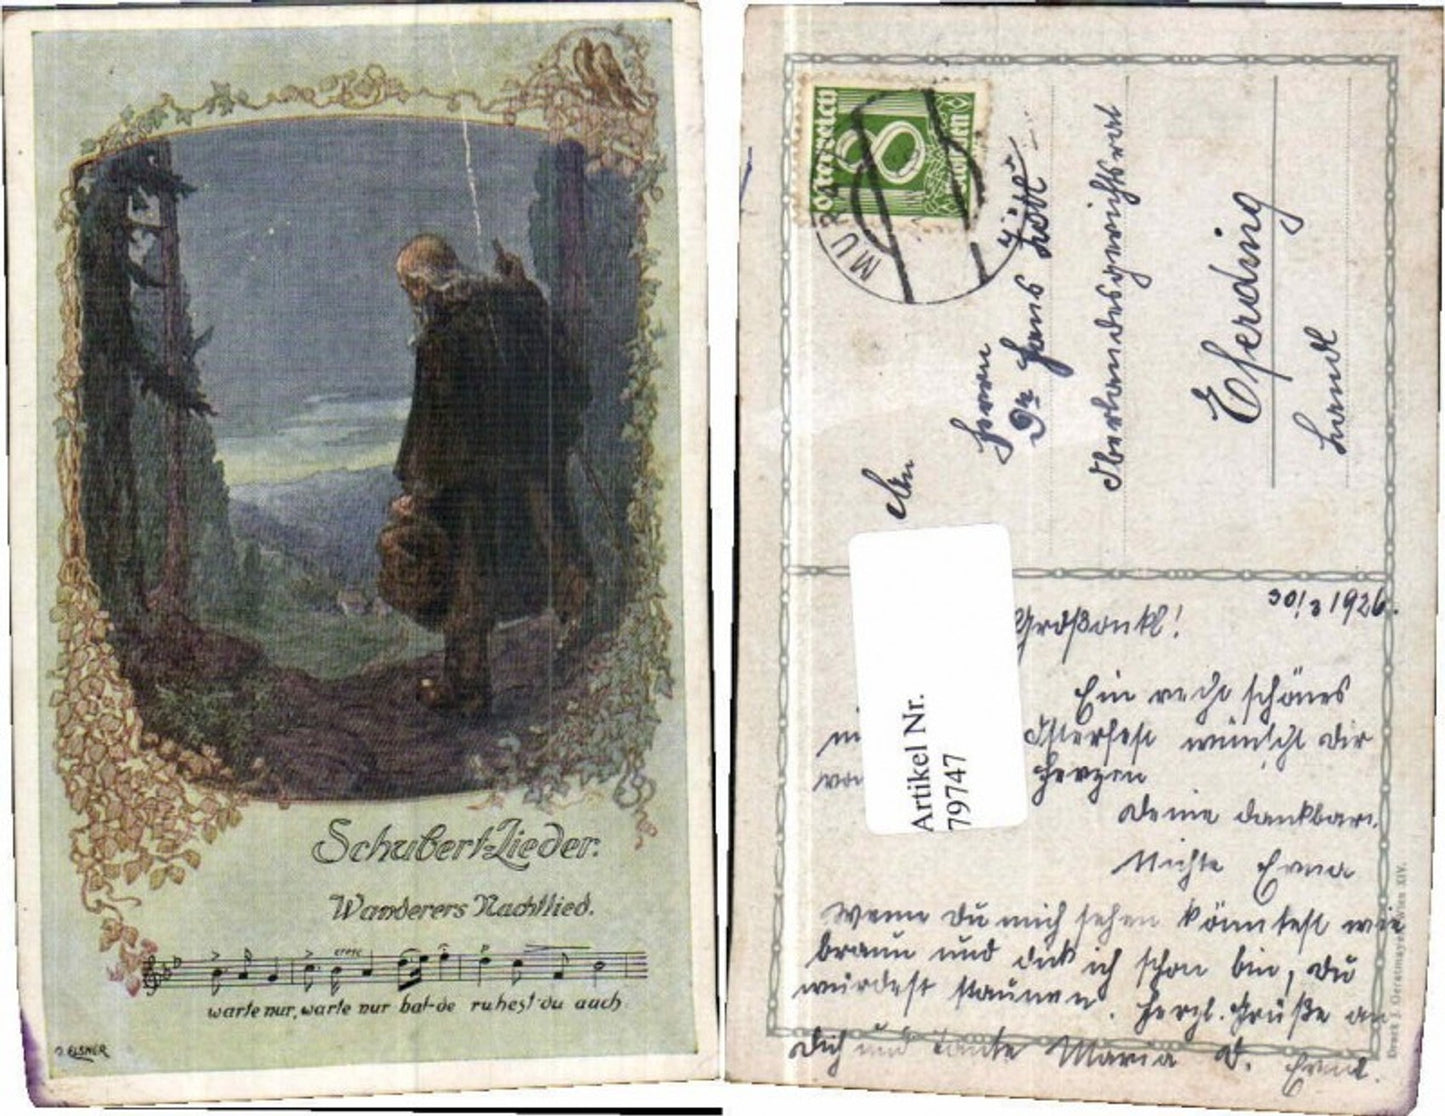 Schubert-Lieder.
Wanderers Nachtlied.
cresc
warte nur, warte nur bal-de ruhest du auch
O. ELSNER
Österreich
8
Groschen
MUR
An
Herrn
Dr Hans
Oberlandesgerichtsrat
Eferding
Artikel Nr.
79747
30/3 1926.
Großonkl!
Ein recht schönes
Osterfest wünscht Dir
Herzen
Deine dankbare
Nichte Erna
Wenn Du mich sehen könntest wie
braun und dick ich schon bin, Du
würdest staunen. Herzl. Grüße an
Dich und Tante Maria D. Erna.
Druck J. Gerstmayer Wien XIV.